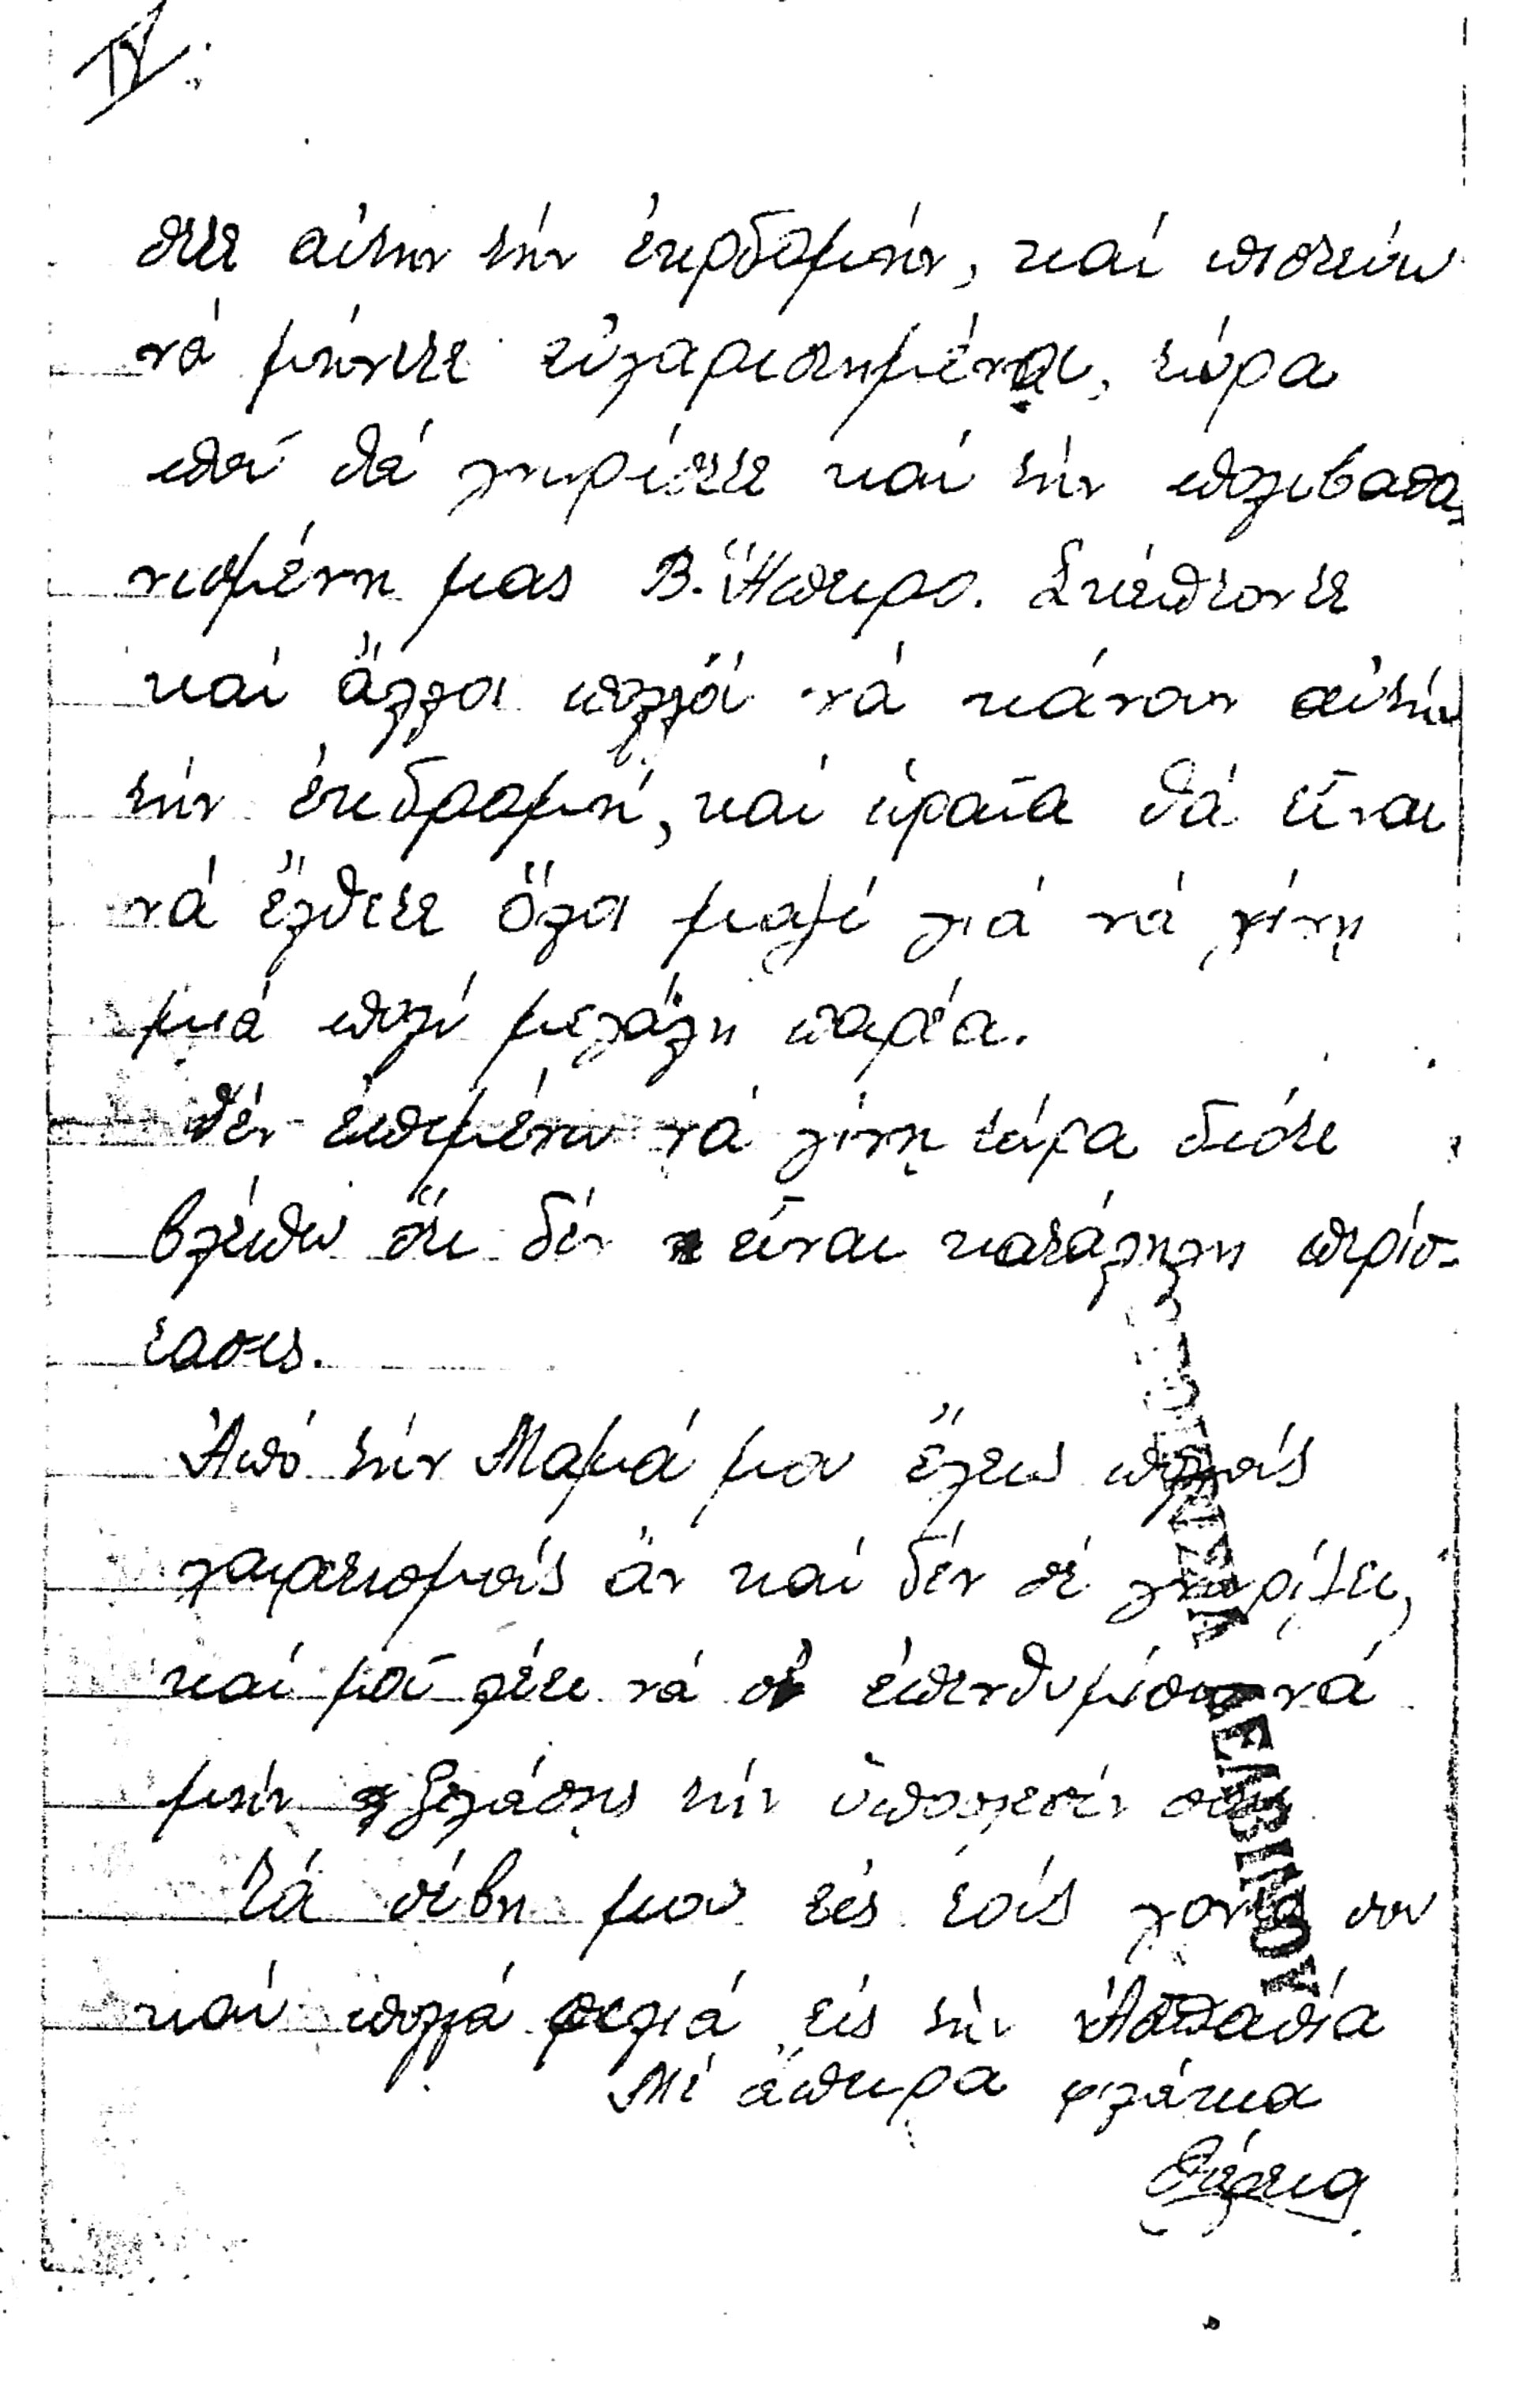 IV
στε αὐτην τήν ἐκρδομήν, καί πιστεύω
νά μήνετε εὐχαριστημένοι, τώρα
ποῦ θά γνωρίστε καί τήν πολιβασα
νισμένη μας Β. Ἤπειρο. Σκέπτοντε
καί ἄλλοι πολλοί νά κάνουν αὐτήν
τήν ἐκδρομή, καί ὡραῖα θά εἶναι
νά ἔλθετε ὅλοι μαζί γιά νά γίνῃ
μιά πολύ μεγάλη παρέα.
Δέν ἐπιμένω νά γίνῃ τώρα διότι
βλέπω ὅτι δέν εἶναι κατάληλη περίσ-
τασις.
Ἀπό τήν Μαμά μου ἔχεις πολλούς
χαιρετισμούς ἄν καί δέν σέ γνωρίζει,
καί μοῦ λέει νά σέ ἐπενθυμίσω νά
μήν ξεχάσῃς τήν ὑποσχεσίν σου
Τά σέβη μου είς τούς γονεῖς σου
καί πολλά φιλιά εἰς τήν Ἀσπασία
Μέ ἄπειρα φιλάκια
ΔΕΛΒΙΝΟΥ